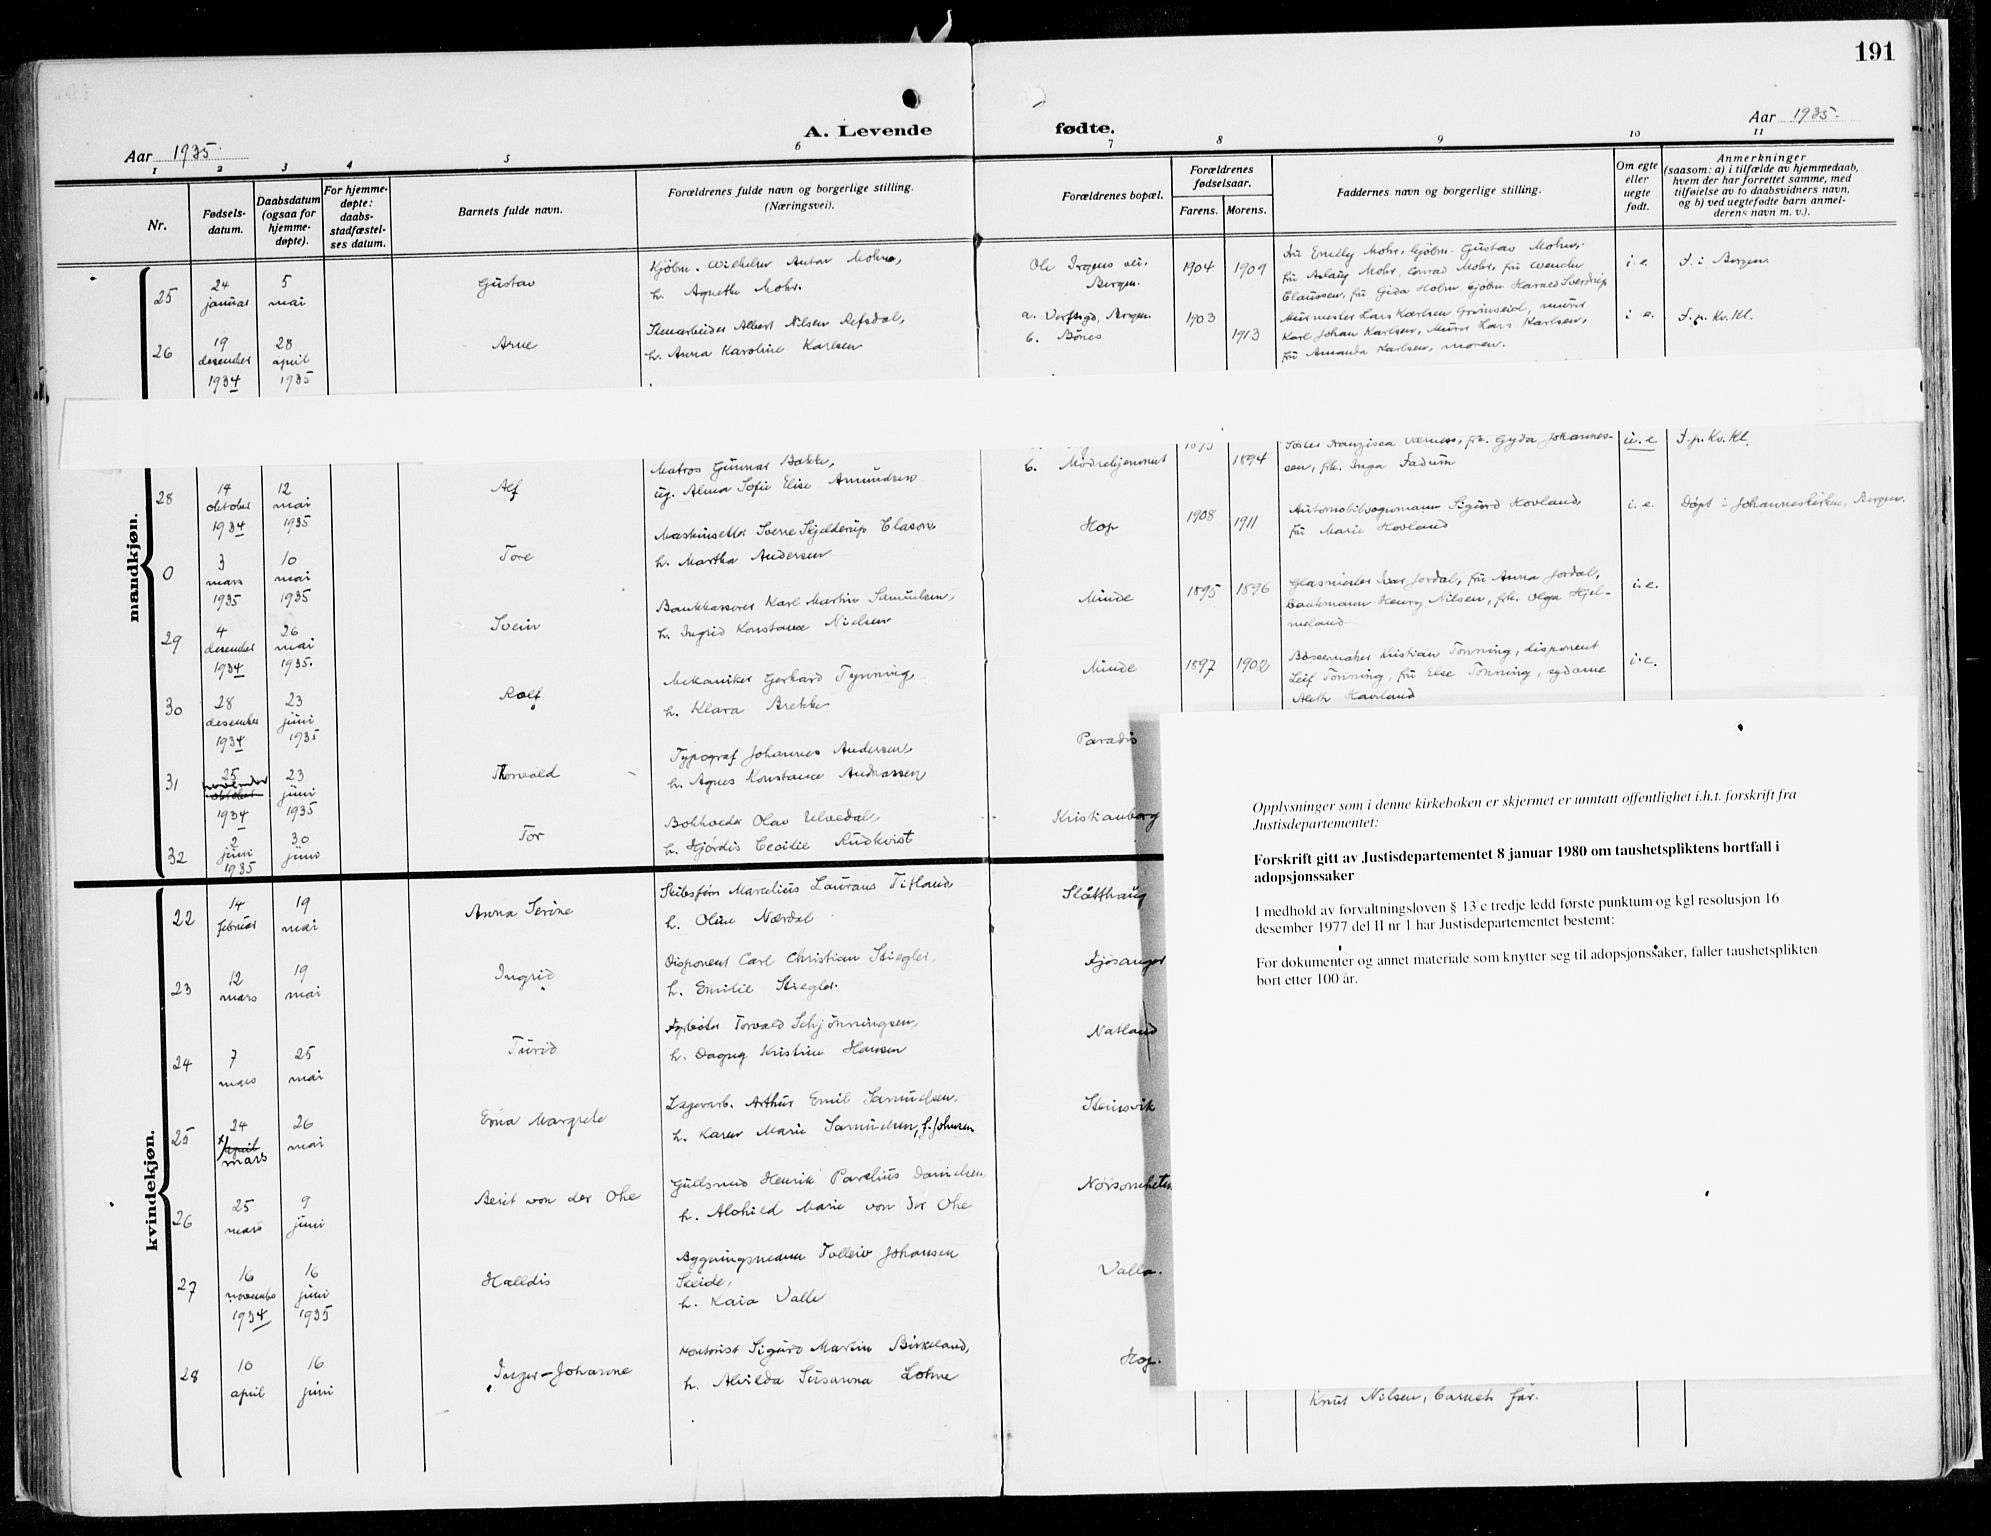 191
A. Levende fødte.
Aar 1935.
Aar 1935.
1 2 3 4 5 6 7 8 9 10 11
Nr.
Fødsels-
datum.
Daabsdatum
(ogsaa for
hjemme-
døpte).
For hjemme-
døpte:
daabs-
stadfæstel-
ses datum.
Barnets fulde navn.
Forældrenes fulde navn og borgerlige stilling.
(Næringsvei).
Forældrenes bopæl.
Forældrenes
fødselsaar.
Farens. Morens.
Faddernes navn og borgerlige stilling.
Om egte
eller
uegte
født.
Anmerkninger
(saasom: a) i tilfælde av hjemmedaab,
hvem der har forrettet samme, med
tilføielse av to daabsvidners navn,
og b) ved uegtefødte barn anmel-
derens navn m. v.).
mandkjøn.
25
24
januar
5
mai
Gustav
Kjøbm. Wilhelm Anton Mohr,
h. Agnethe Mohr.
Ole Irgens vei,
Bergen.
1904 1909
Fru Emilly Mohr, kjøbm. Gustav Mohr,
fru Aslaug Mohr, Conrad Mohr, fru Wenche
Claussen, fru Gida Holm, kjøbm Harald Sverdrup
i. e.
F. i Bergen.
26
19
desember
1934
28
april
1935
Arne
Stenarbeider Albert Nilsen Refsdal,
h. Anna Karoline Karlsen
a. Verftsgt, Bergen.
b. Bønes
1903
1913
Murmester Lars Karlsen Grimseid, murer
Karl Johan Karlsen, Murer Lars Karlsen,
fru Amanda Karlsen, moren.
i e.
F. p. Kv. Kl.
28
14
oktober
1934
12
mai
1935
Alf
Matros Gunnar Bakke,
ug. Alma Sofie Elise Amundsen
b. Mødrehjemmet
1894
Søster Franzisca Værness, frk. Gyda Johannes-
sen, frk. Inga Fadum
u. e
F. p. Kv. Kl.
0
3
mars
1935
10
mai
1935
Tore
Maskinsetter Sverre Skjelderup Clason
h. Martha Andersen
Hop
1908 1911
Automobilvognmann Sigurd Hovland,
fru Marie Hovland
i. e.
Døpt i Johanneskirken, Bergen.
29
4
desember
1934
26
mai
1935.
Svein
Bankkasserer Karl Martin Samuelsen,
h. Ingrid Konstance Nielsen
Minde
1895 1896
Glasmester Ivar Jordal, fru Anna Jordal,
bankmann Henry Nilsen, frk. Olga Hjel-
meland
i. e.
30
28
desember
1934
23
juni
1935
Rolf
Mekaniker Gerhard Tynning,
h. Klara Brekke
Minde
1897 1902
Bøssemaker Kristian Tønning, disponent
Leif Tønning, fru Else Tønning, sydame
Aleth Havland
i. e.
31
25
november
oktober
1934
23
juni
1935
Thorvald
Typograf Johannes Andersen
h. Agnes Konstance Andreassen
Paradis
32
2
juni
1935
30
juni
Tor
Bokholder Olav Ulvedal,
h. Hjørdis Cecilie Rudkvist
Kristianborg
kvindekjøn.
22
14
februar
19
mai
Anna Serine
Skibsfører Marcelius Laurans Titland,
h. Oline Nærdal
Slåtthaug
23
12
mars
19
mai
Ingrid
Disponent Carl Christian Stiegler,
h. Emilie Stiegler.
Fjøsanger
24
7
mars
25
mai
Turid
Fyrbøter Torvald Schjønningsen,
h. Dagny Kristine Hansen
Natland
25
24
april
mars
26
mai
Erna Margrete
Lagerarb. Arthur Emil Samuelsen,
h. Karen Marie Samuelsen, f. Johnsen
Steinsvik
26
25
mars
9
juni
Berit von der Ohe
Gullsmed Henrik Parelius Danielsen,
h. Alohild Marie von der Ohe
Nøisomheten
27
16
november
1934
16
juni
1935
Halldis
Bygningsmann Tolleiv Johansen
Skeide,
h. Kaia Valle
Valla.
28
10
april
16
juni
Inger-Johanne
Kontorist Sigurd Martin Birkeland,
h. Alvilda Susanna Lohne
Hop.
Knut Nilsen, barnets far.
Opplysninger som i denne kirkeboken er skjermet er unntatt offentlighet i.h.t. forskrift fra
Justisdepartementet:
Forskrift gitt av Justisdepartementet 8 januar 1980 om taushetspliktens bortfall i
adopsjonssaker
I medhold av forvaltningsloven § 13 c tredje ledd første punktum og kgl resolusjon 16
desember 1977 del II nr 1 har Justisdepartementet bestemt:
For dokumenter og annet materiale som knytter seg til adopsjonssaker, faller taushetsplikten
bort etter 100 år.